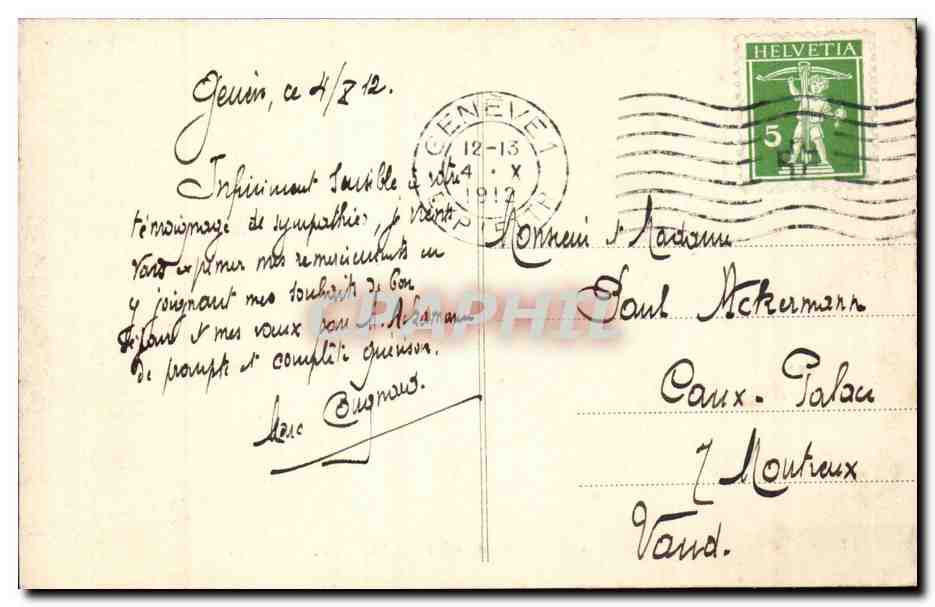 Genève, ce 4/X 12.
Infiniment sensible à votre
témoignage de sympathies, je viens
vous exprimer mes remerciements en
y joignant mes souhaits de bon
séjour et mes vœux pour M. Ackermann
de prompte et complète guérison.
Marc
HELVETIA
5
GENÈVE 1
12-13
4 · X
1912
Monsieur & Madame
Paul Ackermann
Caux-Palace
s/ Montreux
Vaud.
CPAPHIL